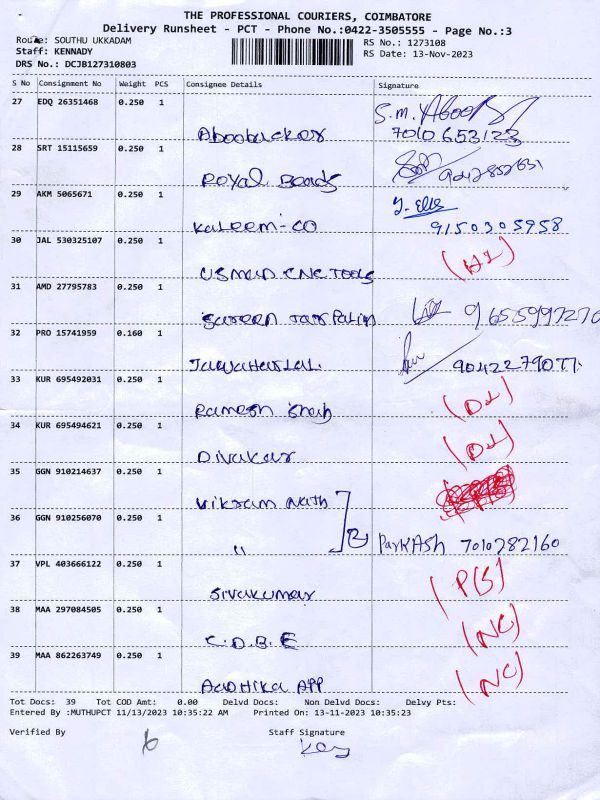 THE PROFESSIONAL COURIERS, COIMBATORE
Delivery Runsheet - PCT - Phone No.:0422-3505555 - Page No.:3
Route: SOUTHU UKKADAM
RS No.: 1273108
Staff: KENNADY
RS Date: 13-Nov-2023
DRS No.: DCJB127310803
S No Consignment No Weight PCS Consignee Details Signature
27 EDQ 26351468 0.250 1
Aboobacker 7010653123
28 SRT 15115659 0.250 1
Royal Beads
29 AKM 5065671 0.250 1
Kaleem-CO 9150305958
30 JAL 530325107 0.250 1
USman CNC Tools
31 AMD 27795783 0.250 1
9655997270
32 PRO 15741959 0.160 1
Jawaharlal. 9042279077.
33 KUR 695492031 0.250 1
Ramesh Shah (DL)
34 KUR 695494621 0.250 1
Divakar (DL)
35 GGN 910214637 0.250 1
Vikram Nath
36 GGN 910256070 0.250 1
" 2 ParkAsh 7010282160
37 VPL 403666122 0.250 1
Sivakumar
38 MAA 297084505 0.250 1
C.D.B.E (NC)
39 MAA 862263749 0.250 1
AadHika APP (NC)
Tot Docs: 39 Tot COD Amt: 0.00 Delvd Docs: Non Delvd Docs: Delvy Pts:
Entered By :MUTHUPCT 11/13/2023 10:35:22 AM Printed On: 13-11-2023 10:35:23
Verified By Staff Signature